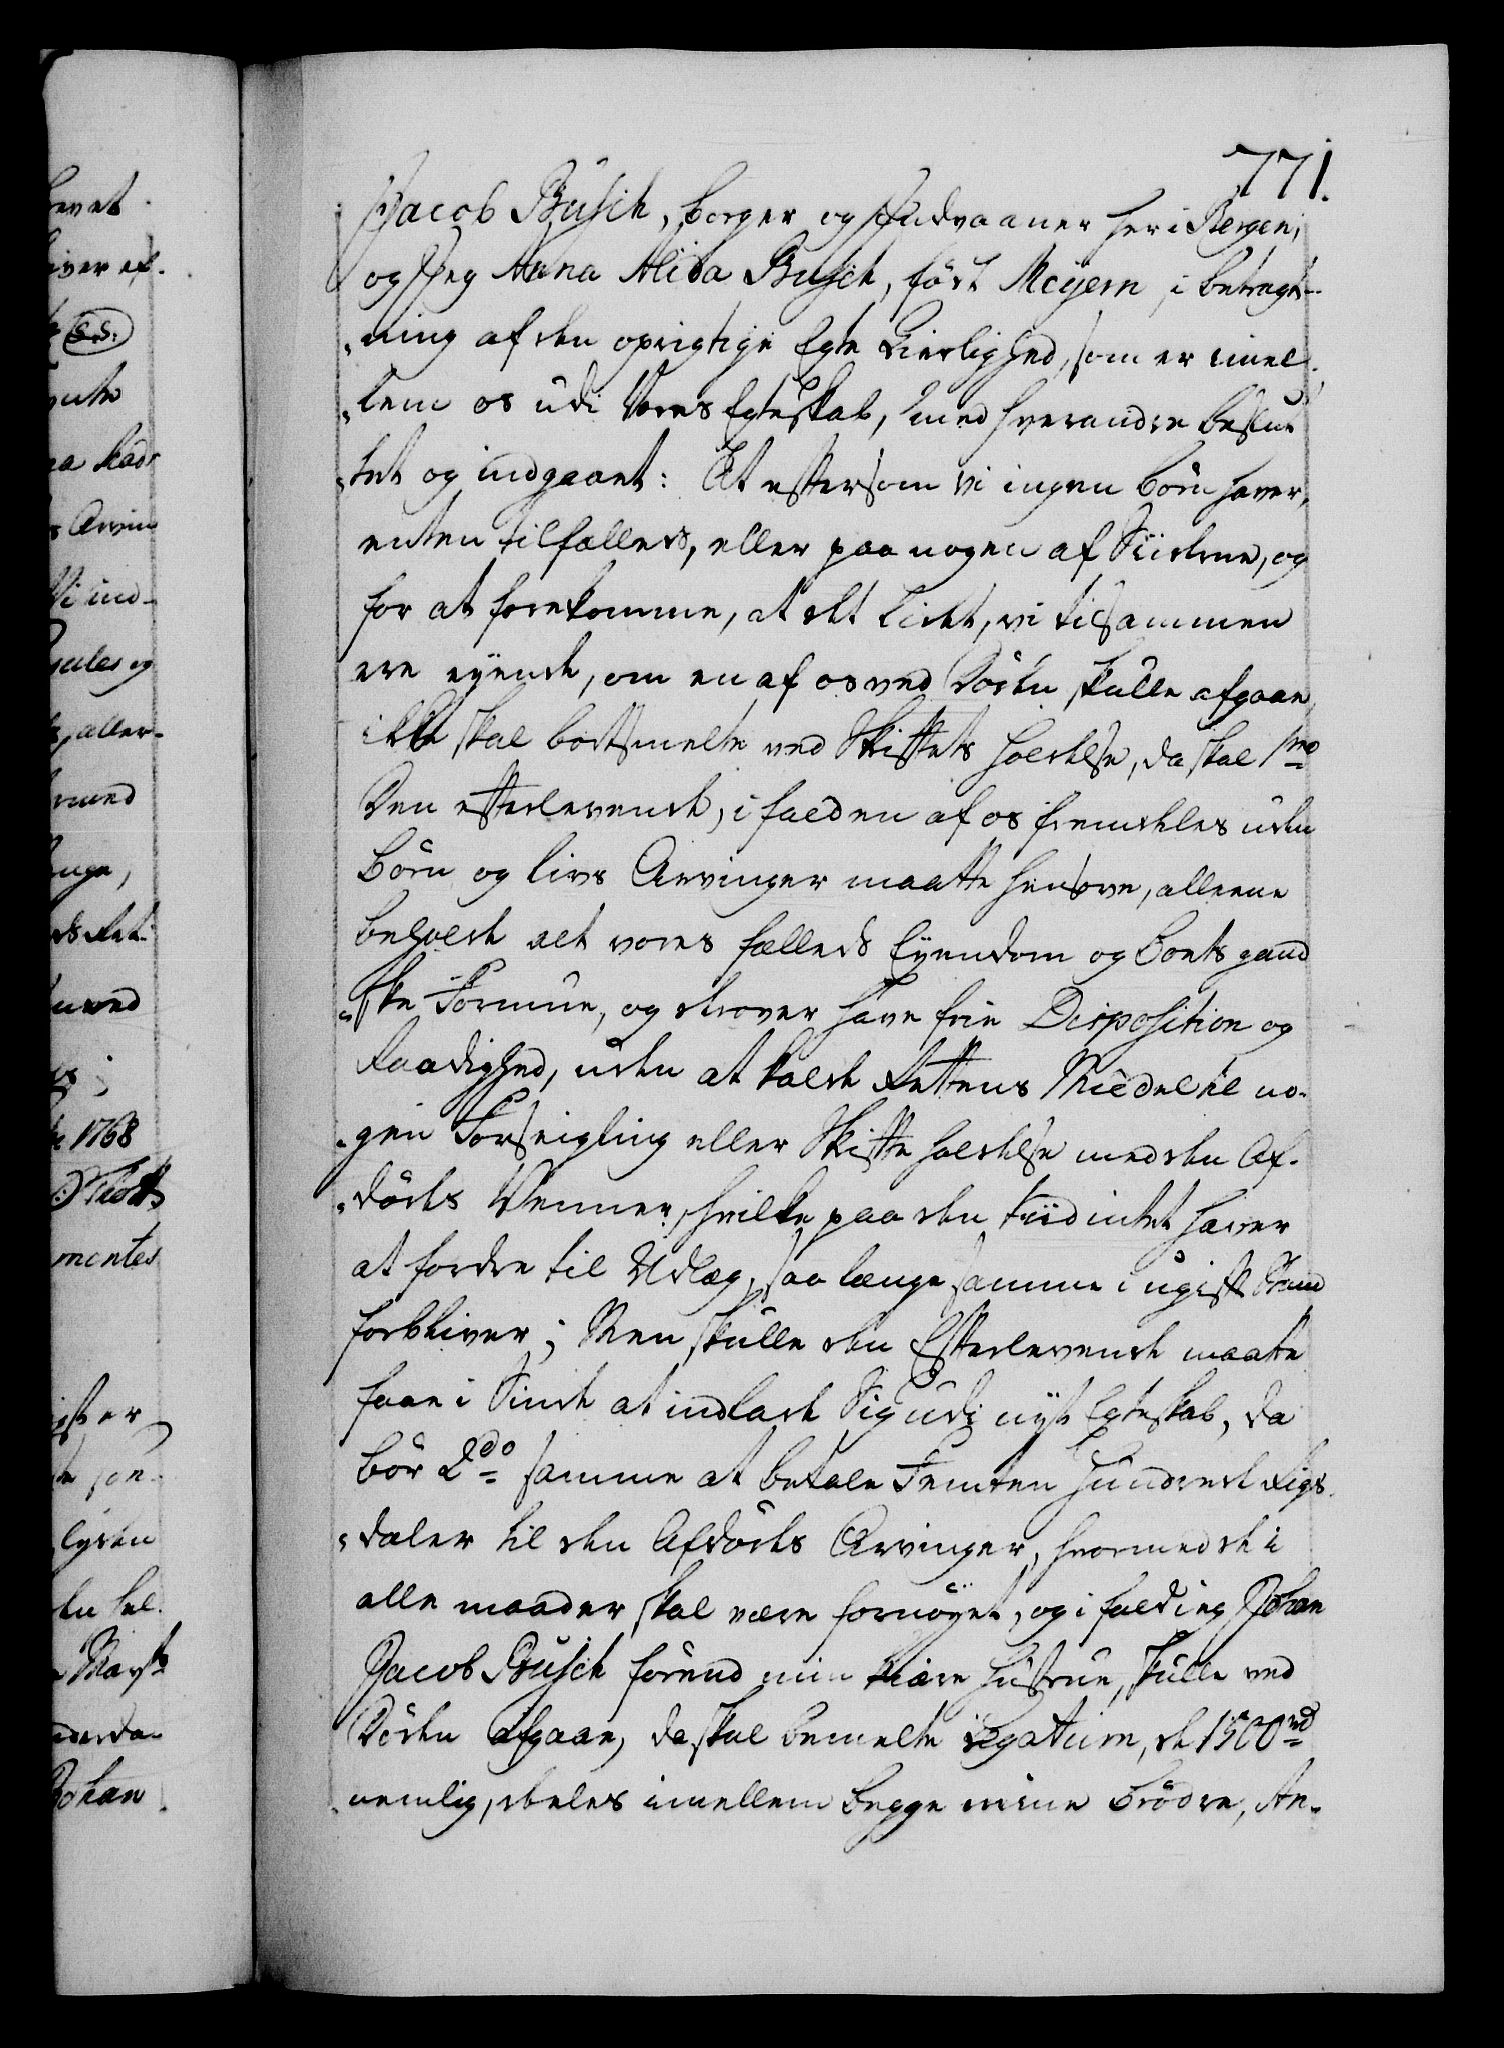 771.
Jacob Busch, borger og Indvaaner her i Bergen,
og Jeg Anna Alida Busch, föd Meyern, i betragt-
ning af den oprigtige Egte Kierlighed, som er imel-
lem os udi Vores Egteskab, med hverandre beslut-
tet og indgaaet: At eftersom vi ingen börn haver,
enten tilfælles, eller paa nogen af Siiderne, og
for at forekomme, at det lidet, vi tilsammen
ere eyende, om en af os ved Döden skulle afgaae,
ikke skal bortsmelte ved Skiftets holdelse, da skal 1mo
Den efterlevende, i fald en af os fremdeles uden
börn og livs Arvinger maatte hensove, alleene
beholde alt vores fælleds Eyendom og boets gand-
ske Formue, og derover have frie Disposition og
Raadighed, uden at kalde Rettens Middel til no-
gen Forseigling eller Skifte holdelse med den Af-
dödes Venner, hvilke paa den tiid intet haver
at fordre til Udlæg, saa længe samme i ugift Stand
forbliver; Men skulle den Efterlevende maatte
faae i Sinde at indlade Sig udi nyt Egteskab, da
bör 2do samme at betale Femten Hundrede Rigs-
daler til den Afdödes Arvinger, hvormed de i
alle maader skal være fornöyet, og i fald ieg Johan
Jacob Busch forend min kiære Hustrue, skulle ved
Döden afgaae, da skal bemelte Legatum, de 1500rd
nemlig, deeles imellem begge mine brödre, An-